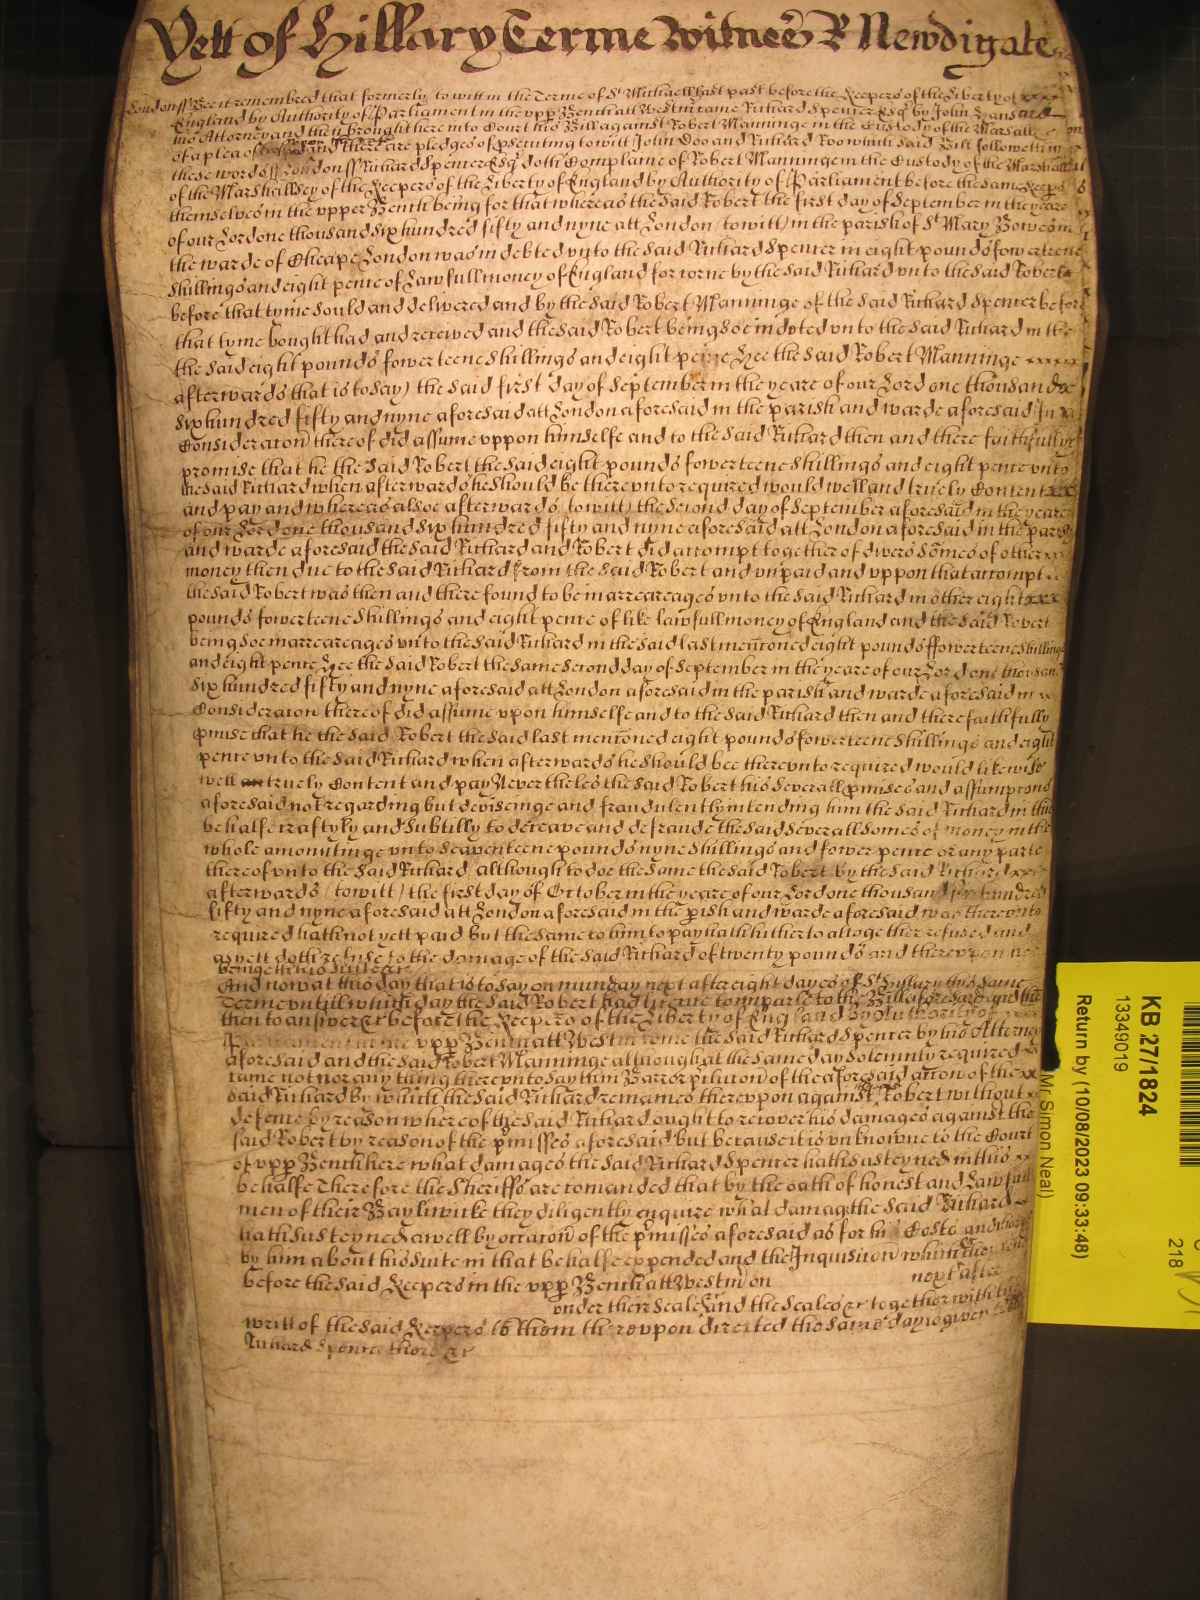 Yett of Hillary Terme Witnes R Newdigate
London ss Bee it remembred that formerly to witt in the Terme of St Michaell last past before the Keepers of the liberty of
England by Authority of Parliament in the vpp Bench att Westm came Richard Spencer Esq by John
his Attorney and then brought here into Court his Bill against Robert Manninge in the Custody of the Marshall
of a plea of and there are pledges of psecuting to witt John Doo and Richard Roo which said Bill followeth in
these words ss London ss Richard Spencer Esq doth Complaine of Robert Manninge in the Custody of the Marshall
of the Marshallsey of the Keepers of the Liberty of England by Authority of Parliament before the same Keeps
themselves in the vpper Bench being for that whereas the said Robert the first day of September in the yeare
of our Lord one thousand six hundred fifty and nyne att London (to witt) in the parish of St Mary Bowe in
the warde of Cheape London was indebted vnto the said Richard Spencer in eight pounds fowerteene
shillings and eight pence of Lawfull money of England for by the said Richard vnto the said Robert
before that tyme sould and delivered and by the said Robert Manninge of the said Richard Spencer before
that tyme bought had and received and the said Robert being soe indebted vnto the said Richard in
the said eight pounds fowerteene shillings and eight pence Hee the said Robert Manninge
afterwards that is to say) the said first day of September in the yeare of our Lord one thousand
six hundred fifty and nyne aforesaid att London aforesaid in the parish and warde aforesaid In
Consideracon thereof did assume vppon himselfe and to the said Richard then and there faithfully
promise that he the said Robert the said eight pounds fowerteene shillings and eight pence vnto
the said Richard when afterwards he should be therevnto required would well and truely Content
and pay and whereas alsoe afterwards (to witt) the second day of September aforesaid in the yeare
of our Lord one thousand six hundred fifty and nyne aforesaid att London aforesaid in the parish
and warde aforesaid the said Richard and Robert did accompt together of divers somes of other
money then due to the said Richard from the said Robert and vnpaid and vppon that accompt
the said Robert was then and there found to be in arreareages vnto the said Richard in other eight
pounds fowerteene shillings and eight pence of like lawfull money of England and the said Robert
being soe in arreareages vnto the said Richard in the said last mencioned eight pounds ffowerteene shillings
and eight pence Hee the said Robert the same second day of September in the yeare of our Lord one thousand
six hundred fifty and nyne aforesaid att London aforesaid in the parish and warde aforesaid in
Consideracon thereof did assume vpon himselfe and to the said Richard then and there faithfully
pmise that he the said Robert the said last mentioned eight pounds fowerteene shillings and eight
pence vnto the said Richard when afterwards he should bee therevnto required would likewise
well an truely Content and pay Neverthelesse the said Robert his severall pmises and assumptions
aforesaid not regarding but deviseinge and fraudulently intending him the said Richard in this
behalfe craftyly and subtilly to deceave and defraude the said severall somes of money in the
whole amountinge vnto seaventeene pounds nyne shillings and fower pence or any parte
thereof vnto the said Richard (although to doe the same the said Robert by the said Richard
afterwards (to witt) the first day of October in the yeare of our Lord one thousand six hundred
fifty and nyne aforesaid att London aforesaid in the pish and warde aforesaid was therevnto
required hath not yett paid but the same to him to pay hath hitherto altogether refused and
as yett doth refuse to the damage of the said Richard of twenty pounds and therevpon
bringeth his suite &c
And now at this day that is to say on munday next after eight dayes of St Hillary this same
Terme vntill which day the said Robert had licence to imparle to the Bill aforesaid and
then to answere &c before the Keepers of the Liberty of England by Authority of
Parliament in the vpp Bench att Westm come the said Richard Spencer by his Attorney
aforesaid and the said Robert Manninge although at the same day solemnly required
came not nor any thing therevnto say then Barre or of the aforesaid accon of the
said Richard By which the said Richard remaines therevpon against Robert without
defence by reason whereof the said Richard ought to recover his damages against the
said Robert by reason of the pmisses aforesaid but because it is vnknowne to the Court
of vpp Bench here what damages the said Richard Spencer hath susteyned in this
behalfe Therefore the Sheriffs are comanded that by the oath of honest and Lawfull
men of their Baylwicke they diligently enquire what damage the said Richard
hath susteyned aswell by occacon of the pmisses aforesaid as for his Costs and
by him about his suite in that behalfe expended and the Inquisicon which
before the said Keepers in the vpp Bench att Westm on next after
vnder their Seale and the Seales &c together with
writt of the said Keepers to them therevpon directed the same day is given
Richard Spencer there &c
KB 27/1824
13349019
Return by (10/08/2023 09:33:48)
Mr. Simon Neal)
218